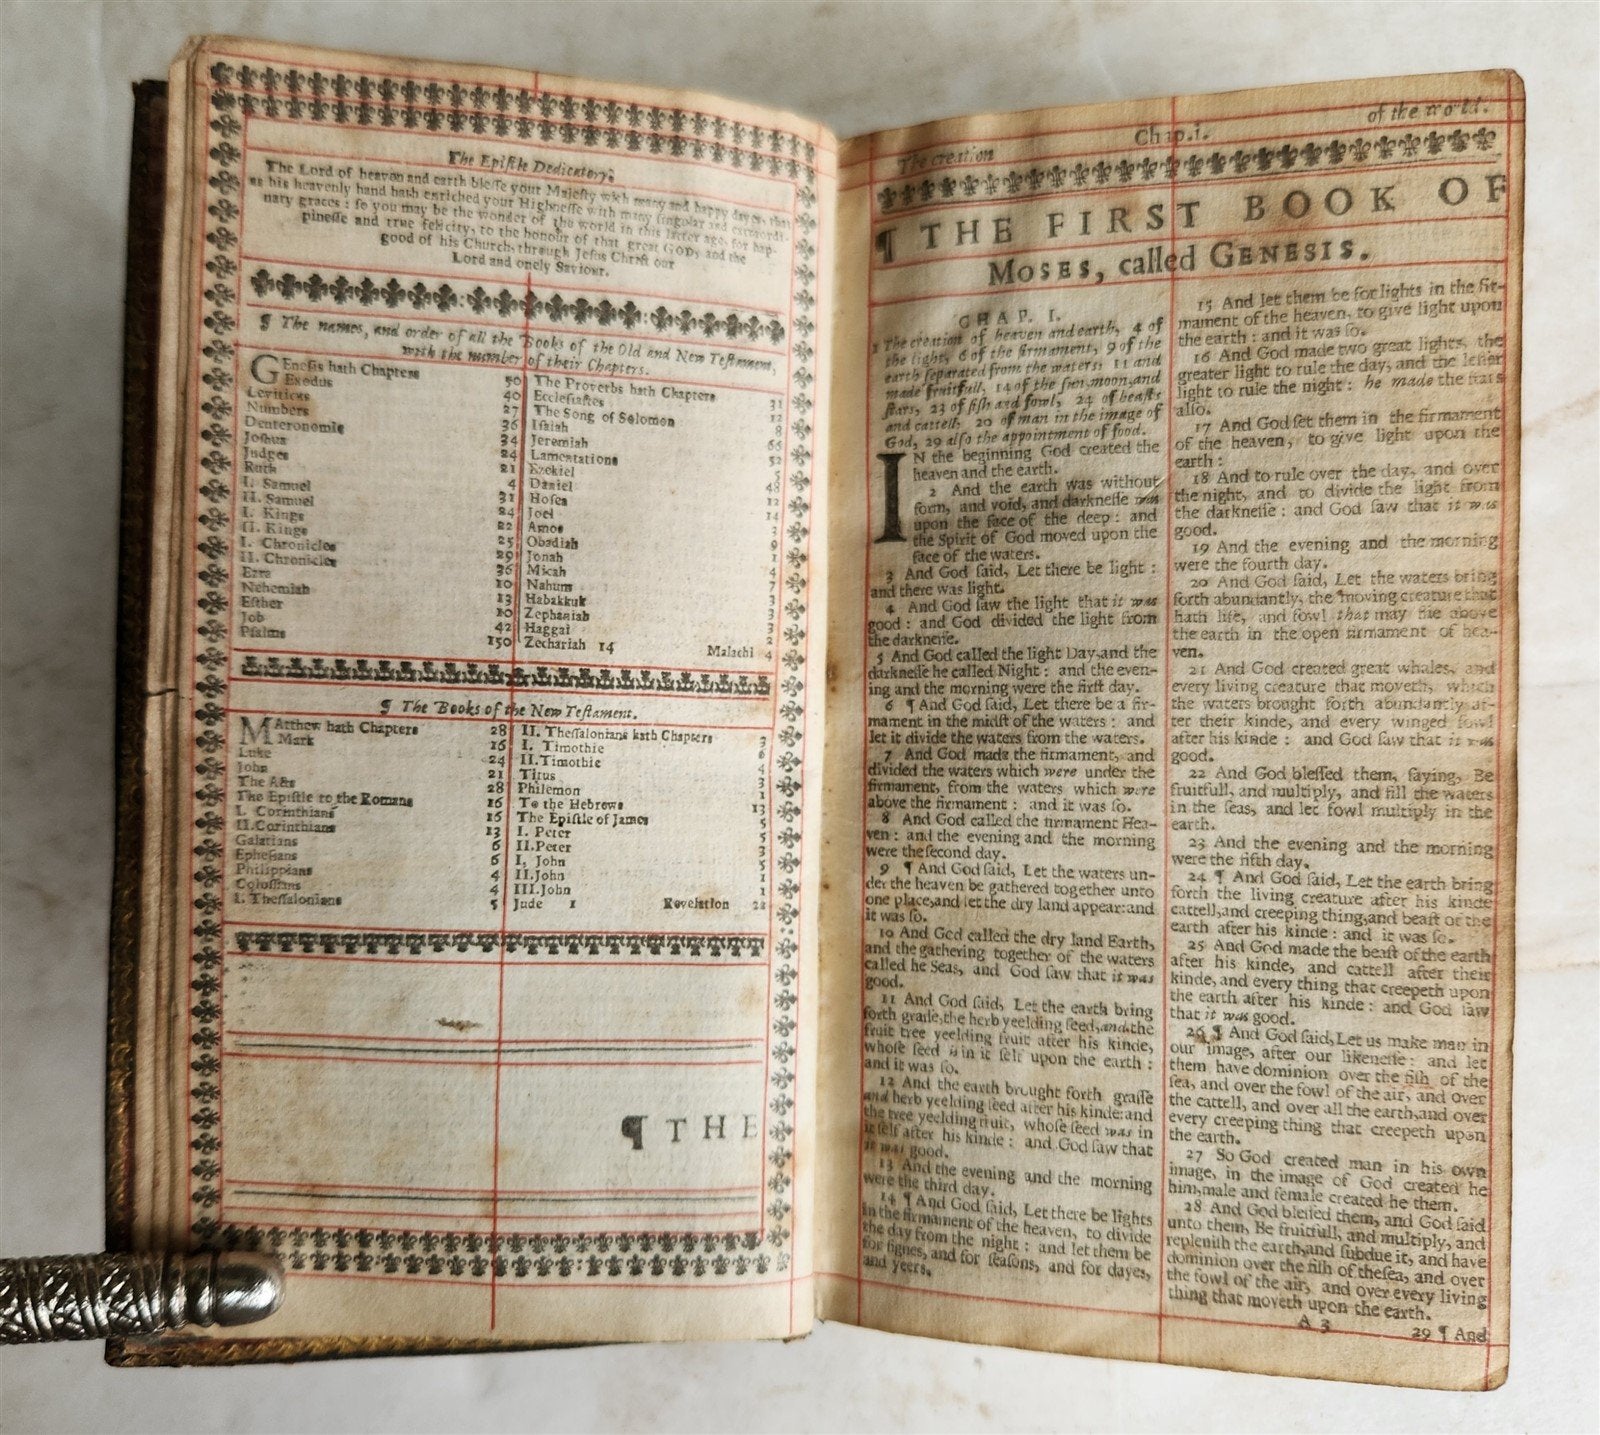 The Epistle Dedicatory.
The Lord of heaven and earth blesse your Majesty with many and happy dayes, that
as his heavenly hand hath enriched your Highnesse with many singular and extraordi-
nary graces: so you may be the wonder of the world in this later age, for hap-
pinesse and true felicity, to the honour of that great GOD, and the
good of his Church, through Jesus Christ our
Lord and onely Saviour.
¶ The names, and order of all the Books of the Old and New Testament,
with the number of their Chapters.
GEnesis hath Chapters 50
Exodus 40
Leviticus 27
Numbers 36
Deuteronomie 34
Joshua 24
Judges 21
Ruth 4
I. Samuel 31
II. Samuel 24
I. Kings 22
II. Kings 25
I. Chronicles 29
II. Chronicles 36
Ezra 10
Nehemiah 13
Esther 10
Job 42
Psalms 150
The Proverbs hath Chapters 31
Ecclesiastes 12
The Song of Solomon 8
Isaiah 66
Jeremiah 52
Lamentations 5
Ezekiel 48
Daniel 12
Hosea 14
Joel 3
Amos 9
Obadiah 1
Jonah 4
Micah 7
Nahum 3
Habakkuk 3
Zephaniah 3
Haggai 2
Zechariah 14 Malachi 4
¶ The Books of the New Testament.
MAtthew hath Chapters 28
Mark 16
Luke 24
John 21
The Acts 28
The Epistle to the Romans 16
I. Corinthians 16
II. Corinthians 13
Galatians 6
Ephesians 6
Philippians 4
Colossians 4
I. Thessalonians 5
II. Thessalonians hath Chapters 3
I. Timothie 6
II. Timothie 4
Titus 3
Philemon 1
To the Hebrews 13
The Epistle of James 5
I. Peter 5
II. Peter 3
I. John 5
II. John 1
III. John 1
Jude 1 Revelation 22
¶ THE
The creation Chap.i. of the world.
¶ THE FIRST BOOK OF
MOSES, called GENESIS.
CHAP. I.
1 The creation of heaven and earth, 4 of
the light, 6 of the firmament, 9 of the
earth separated from the waters: 11 and
made fruitfull, 14 of the sun, moon, and
stars, 23 of fish and fowl, 24 of beasts
and cattell, 20 of man in the image of
God, 29 also the appointment of food.
IN the beginning God created the
heaven and the earth.
2 And the earth was without
form, and void, and darknesse was
upon the face of the deep: and
the Spirit of God moved upon the
face of the waters.
3 And God said, Let there be light:
and there was light.
4 And God saw the light that it was
good: and God divided the light from
the darknesse.
5 And God called the light Day, and the
darknesse he called Night: and the even-
ing and the morning were the first day.
6 ¶ And God said, Let there be a fir-
mament in the midst of the waters: and
let it divide the waters from the waters.
7 And God made the firmament, and
divided the waters which were under the
firmament, from the waters which were
above the firmament: and it was so.
8 And God called the firmament Hea-
ven: and the evening and the morning
were the second day.
9 ¶ And God said, Let the waters un-
der the heaven be gathered together unto
one place, and let the dry land appear: and
it was so.
10 And God called the dry land Earth,
and the gathering together of the waters
called he Seas, and God saw that it was
good.
11 And God said, Let the earth bring
forth grasse, the herb yeelding seed, and the
fruit tree yeelding fruit after his kinde,
whose seed is in it self upon the earth:
and it was so.
12 And the earth brought forth grasse
and herb yeelding seed after his kinde: and
the tree yeelding fruit, whose seed was in
it self after his kinde: and God saw that
it was good.
13 And the evening and the morning
were the third day.
14 ¶ And God said, Let there be lights
in the firmament of the heaven, to divide
the day from the night: and let them be
for signes, and for seasons, and for dayes,
and yeers.
15 And let them be for lights in the fir-
mament of the heaven, to give light upon
the earth: and it was so.
16 And God made two great lights, the
greater light to rule the day, and the lesser
light to rule the night: he made the stars
also.
17 And God set them in the firmament
of the heaven, to give light upon the
earth:
18 And to rule over the day, and over
the night, and to divide the light from
the darknesse: and God saw that it was
good.
19 And the evening and the morning
were the fourth day.
20 And God said, Let the waters bring
forth abundantly, the moving creature that
hath life, and fowl that may flie above
the earth in the open firmament of hea-
ven.
21 And God created great whales, and
every living creature that moveth, which
the waters brought forth abundantly af-
ter their kinde, and every winged fowl
after his kinde: and God saw that it was
good.
22 And God blessed them, saying, Be
fruitfull, and multiply, and fill the waters
in the seas, and let fowl multiply in the
earth.
23 And the evening and the morning
were the fifth day.
24 ¶ And God said, Let the earth bring
forth the living creature after his kinde
cattell, and creeping thing, and beast of the
earth after his kinde: and it was so.
25 And God made the beast of the earth
after his kinde, and cattell after their
kinde, and every thing that creepeth upon
the earth after his kinde: and God saw
that it was good.
26 ¶ And God said, Let us make man in
our image, after our likenesse: and let
them have dominion over the fish of the
sea, and over the fowl of the air, and over
the cattell, and over all the earth, and over
every creeping thing that creepeth upon
the earth.
27 So God created man in his own
image, in the image of God created he
him, male and female created he them.
28 And God blessed them, and God said
unto them, Be fruitfull, and multiply, and
replenish the earth, and subdue it, and have
dominion over the fish of the sea, and over
the fowl of the air, and over every living
thing that moveth upon the earth.
A 3 29 ¶ And